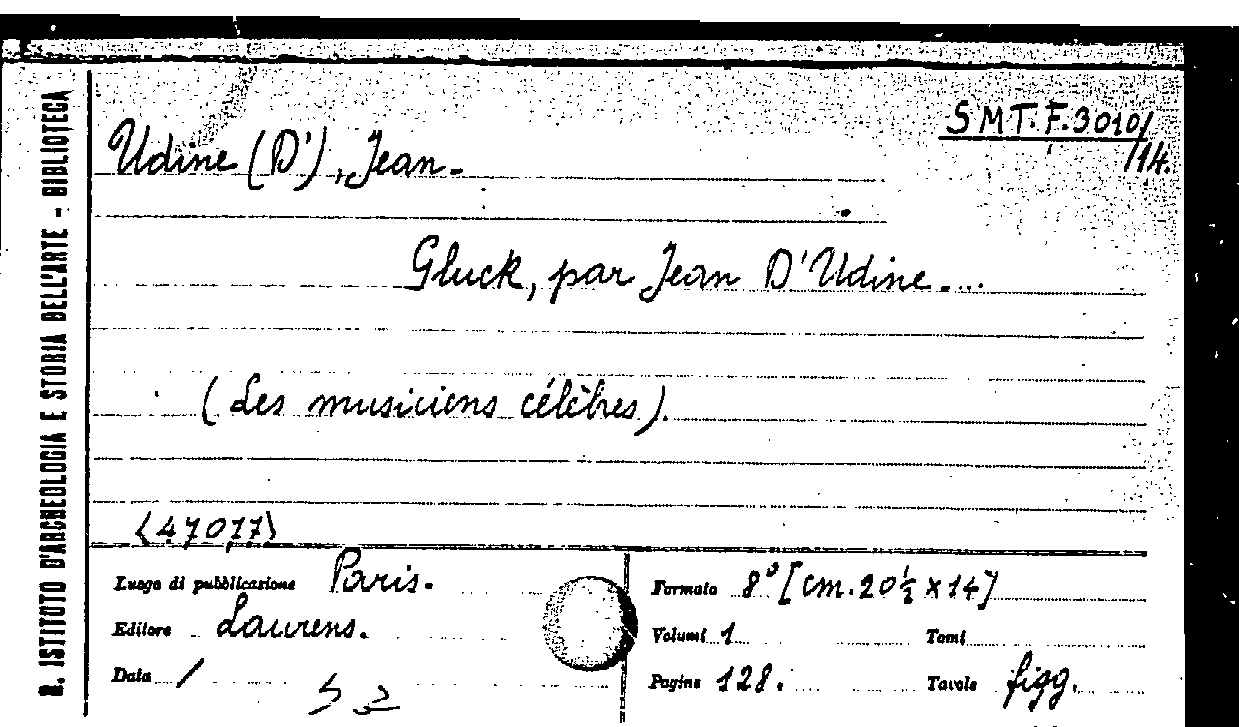 R. ISTITUTO D'ARCHEOLOGIA E STORIA DELL'ARTE - BIBLIOTECA
SMT. F. 3010/
/14.
Udine (D'), Jean.
Gluck, par Jean D'Udine....
(Les musiciens célèbres).
(47077)
Luogo di pubblicazione Paris.
Editore Laurens.
Data /
Formato 8° [cm. 20½ x 14]
Volumi 1 Tomi
Pagine 128. Tavole figg.